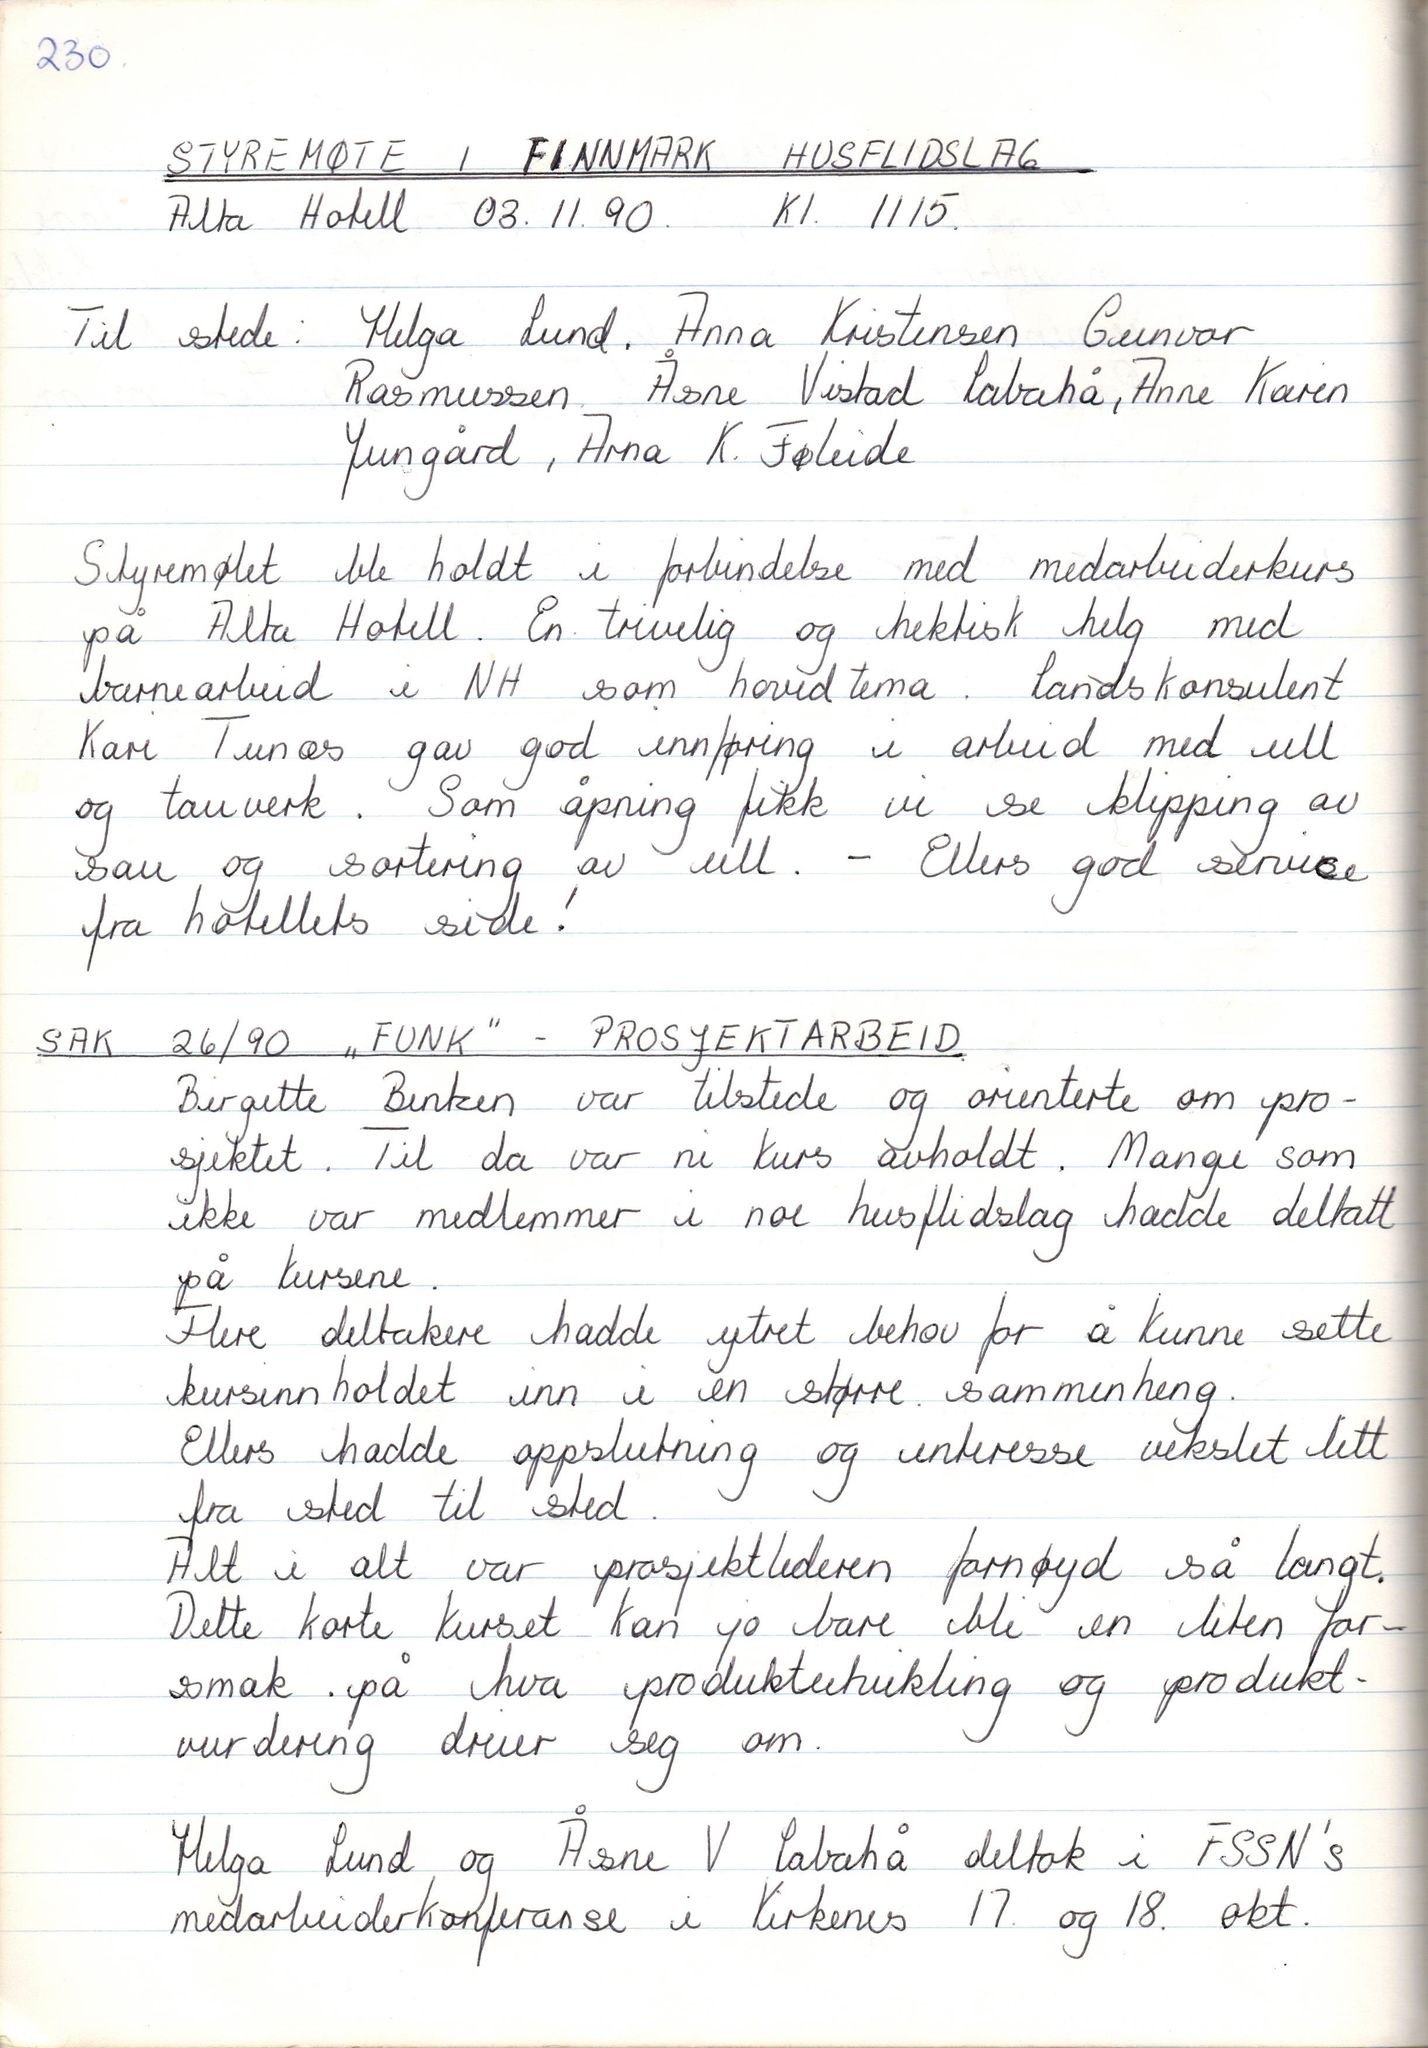 230.
STYREMØTE I FINNMARK HUSFLIDSLAG
Alta Hotell 03.11.90. Kl. 1115.
Til stede: Helga Lund, Anna Kristensen Gunvor
Rasmussen Åsne Vistad Labahå, Anne Karin
Ljungård, Arna K. Føleide
Styremøtet ble holdt i forbindelse med medarbeiderkurs
på Alta Hotell. En trivelig og hektisk helg med
barnearbeid i NH som hovedtema. Landskonsulent
Kari Tunæs gav god innføring i arbeid med ull
og tauverk. Som åpning fikk vi se klipping av
sau og sortering av ull. - Ellers god service
fra hotellets side!
SAK 26/90 „FUNK" - PROSJEKTARBEID
Birgitte Bentzen var tilstede og orienterte om pro-
sjektet. Til da var ni kurs avholdt. Mange som
ikke var medlemmer i noe husflidslag hadde deltatt
på kursene.
Flere deltakere hadde ytret behov for å kunne sette
kursinnholdet inn i en større sammenheng.
Ellers hadde oppslutning og interesse vekslet litt
fra sted til sted.
Alt i alt var prosjektlederen fornøyd så langt.
Dette korte kurset kan jo bare bli en liten for-
smak på hva produktutvikling og produkt-
vurdering dreier seg om.
Helga Lund og Åsne V Labahå deltok i FSSN's
medarbeiderkonferanse i Kirkenes 17. og 18. okt.